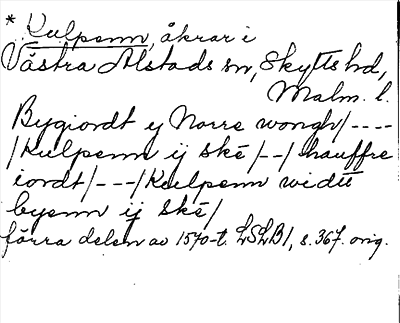 * Kulpenn, åkrar i
Västra Alstads sn, Skytts hd,
Malm. l.
Bygiordt y Norre wongh/----
/Kulpenn ij ské/--/hauffre
iordt/---/Kulpenn widt
byenn ij ské/
förra delen av 1570-t. LSLB1, s. 367. orig.